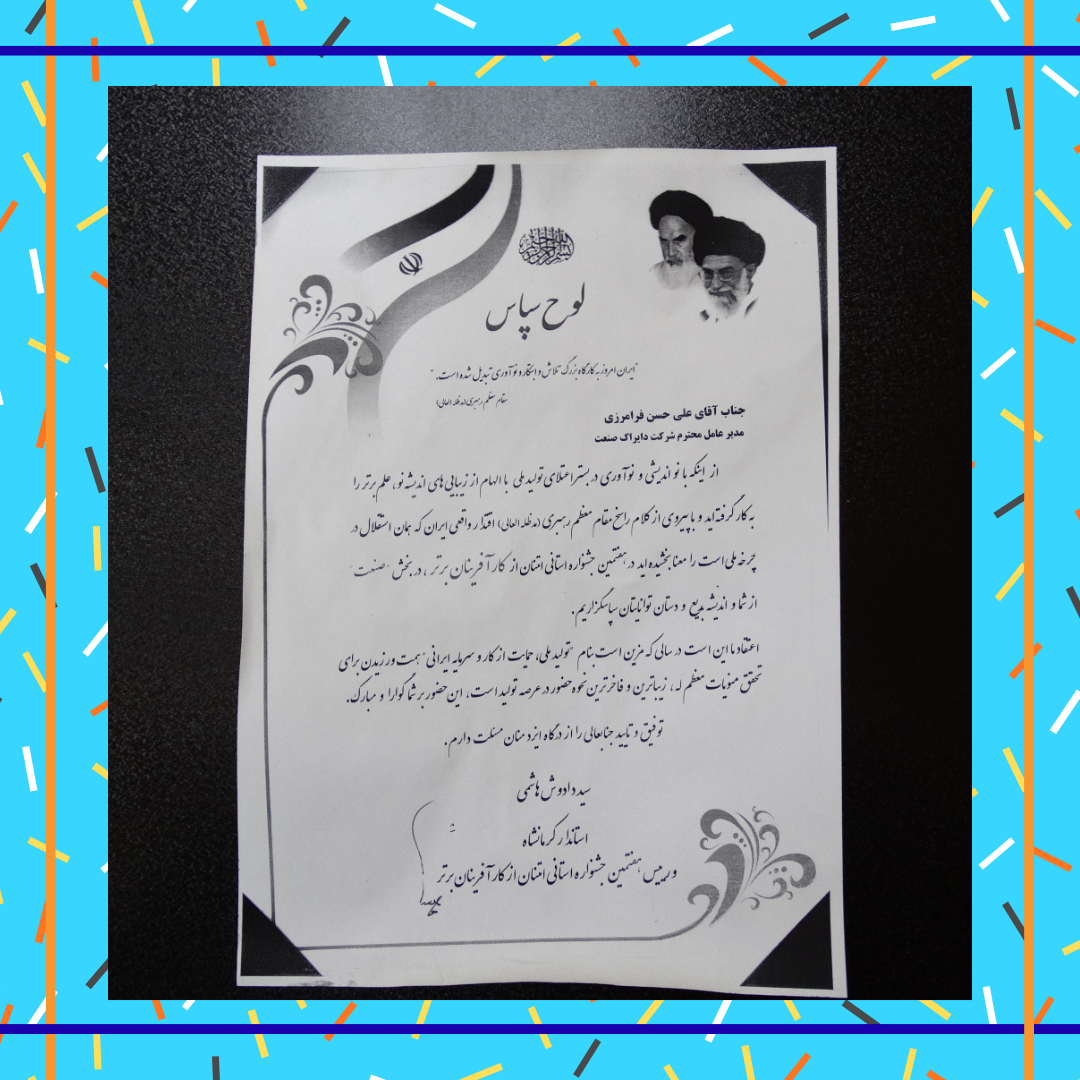 بسم الله الرحمن الرحیم
لوح سپاس
"ایران امروز به کارگاه بزرگ تلاش و ابتکار و نوآوری تبدیل شده است."
مقام معظم رهبری (مدظله العالی)
جناب آقای علی حسن فرامرزی
مدیر عامل محترم شرکت دایراک صنعت
از اینکه با نو اندیشی و نوآوری در بستر اعتلای تولید ملی با الهام از زیبایی های اندیشه نو، علم برتر را
به کار گرفته اید و با پیروی از کلام راسخ مقام معظم رهبری (مدظله العالی) اقتدار واقعی ایران که همان استقلال در
چرخه ملی است را معنا بخشیده اید در هفتمین جشنواره استانی امتنان از کارآفرینان برتر، در بخش "صنعت"
از شما و اندیشه بدیع و دستان توانایتان سپاسگزاریم.
اعتقاد ما این است در سالی که مزین است بنام "تولید ملی، حمایت از کار و سرمایه ایرانی" همت ورزیدن برای
تحقق منویات معظم له، زیباترین و فاخرترین نحوه حضور در عرصه تولید است، این حضور بر شما گوارا و مبارک.
توفیق و تایید جنابعالی را از درگاه ایزد منان مسئلت دارم.
سید دادوش هاشمی
استاندار کرمانشاه
و رییس هفتمین جشنواره استانی امتنان از کارآفرینان برتر